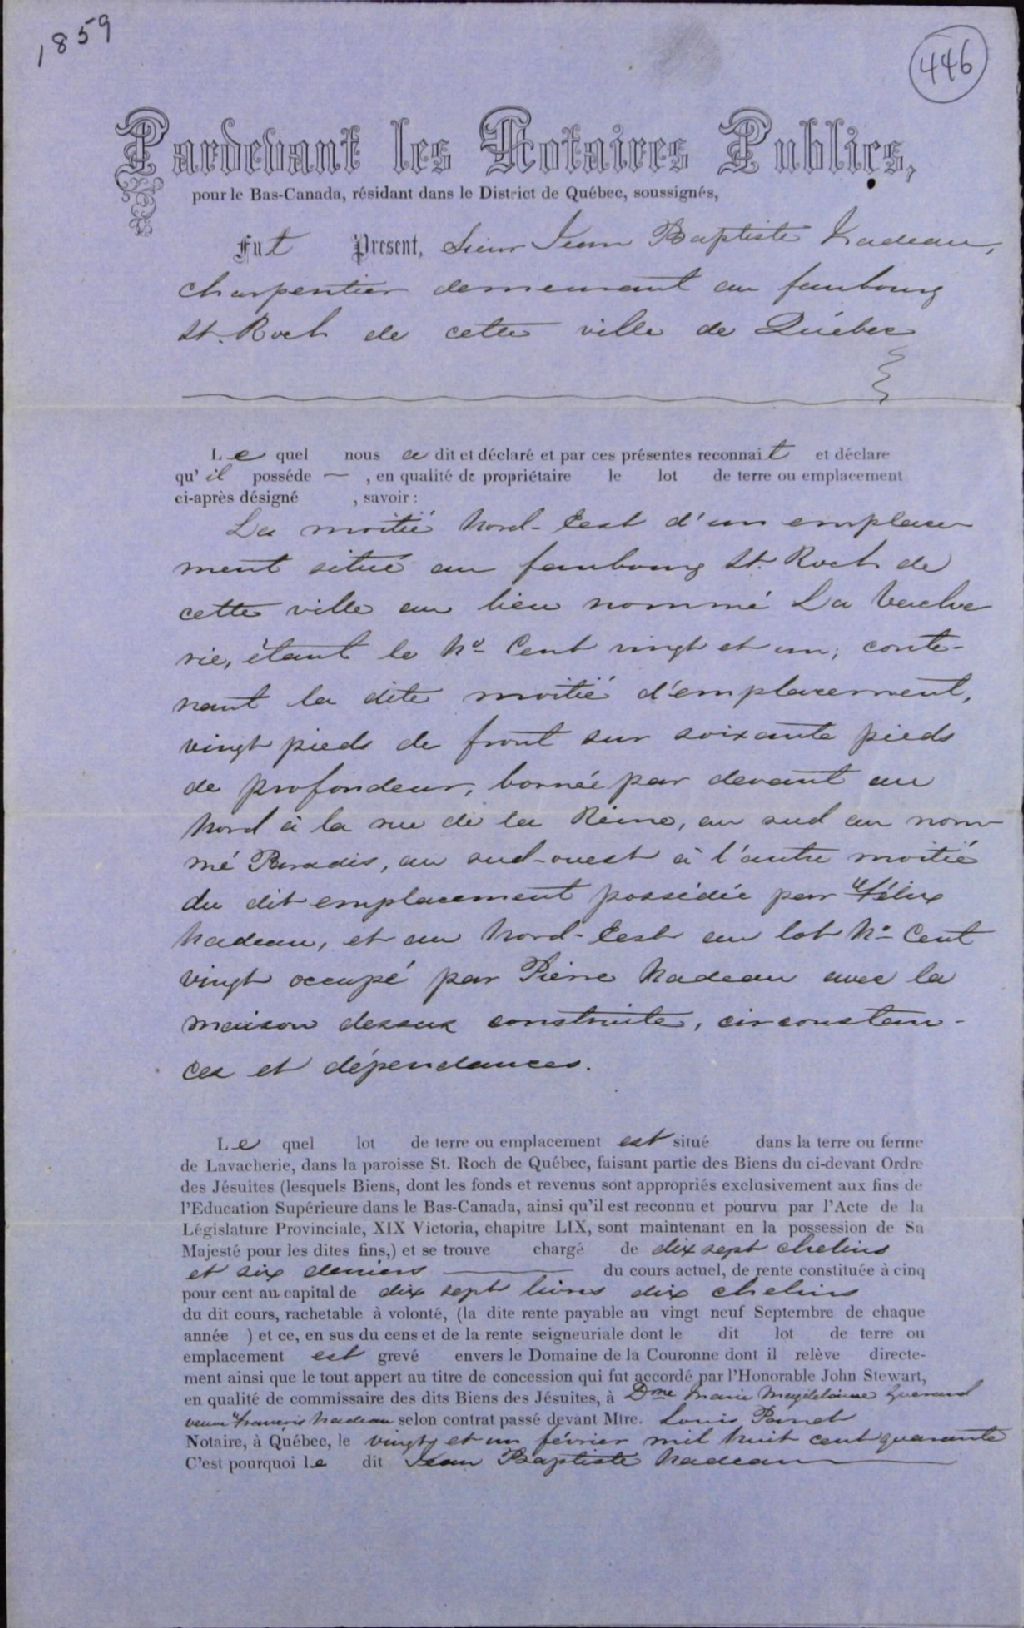 1859
446
Pardevant les Notaires Publics,
pour le Bas-Canada, résidant dans le District de Québec, soussignés,
Fut Present, Sieur Jean Baptiste Nadeau,
charpentier demeurant au faubourg
St. Roch de cette ville de Québec
Le quel nous a dit et déclaré et par ces présentes reconnait et déclare
qu'il posséde — , en qualité de propriétaire le lot de terre ou emplacement
ci-après désigné , savoir :
La moitié Nord-Est d'un emplace
ment situé au faubourg St. Roch de
cette ville au lieu nommé La Vache
rie, étant le No. Cent vingt et un, conte-
nant la dite moitié d'emplacement,
vingt pieds de front sur soixante pieds
de profondeur, bornée par devant au
Nord à la rue de la Reine, au sud au nom-
mé Paradis, au sud-ouest à l'autre moitié
du dit emplacement possédée par Félix
Nadeau, et au Nord-Est au lot No. Cent
vingt occupé par Pierre Nadeau avec la
maison dessus construite, circonstan-
ces et dépendances.
Le quel lot de terre ou emplacement est situé dans la terre ou ferme
de Lavacherie, dans la paroisse St. Roch de Québec, faisant partie des Biens du ci-devant Ordre
des Jésuites (lesquels Biens, dont les fonds et revenus sont appropriés exclusivement aux fins de
l'Education Supérieure dans le Bas-Canada, ainsi qu'il est reconnu et pourvu par l'Acte de la
Législature Provinciale, XIX Victoria, chapitre LIX, sont maintenant en la possession de Sa
Majesté pour les dites fins,) et se trouve chargé de dix sept chelins
et six deniers du cours actuel, de rente constituée à cinq
pour cent au capital de dix sept livres dix chelins
du dit cours, rachetable à volonté, (la dite rente payable au vingt neuf Septembre de chaque
année ) et ce, en sus du cens et de la rente seigneuriale dont le dit lot de terre ou
emplacement est grevé envers le Domaine de la Couronne dont il relève directe-
ment ainsi que le tout appert au titre de concession qui fut accordé par l'Honorable John Stewart,
en qualité de commissaire des dits Biens des Jésuites, à Dme Marie Magdelaine Guenard
veuve Francois Nadeau selon contrat passé devant Mtre. Louis Panet
Notaire, à Québec, le vingt et un février mil huit cent quarante
C'est pourquoi le dit Jean Baptiste Nadeau